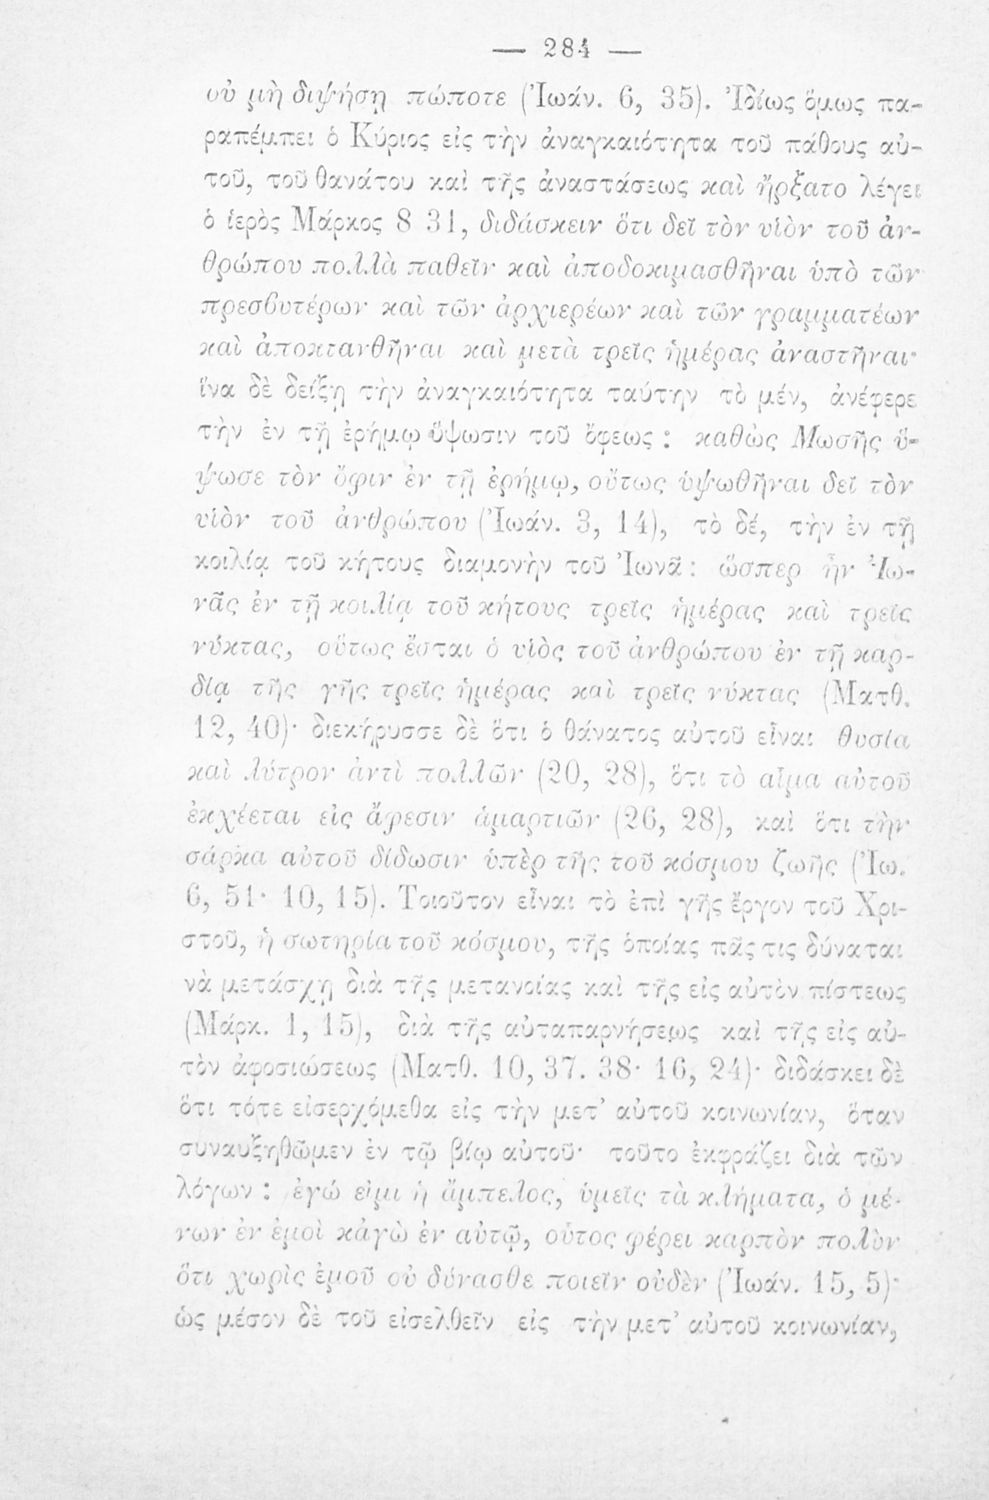 — 284 —
οὐ μὴ διψήσῃ πώποτε (Ἰωάν. 6, 35). Ἰδίως ὅμως πα-
ραπέμπει ὁ Κύριος εἰς τὴν ἀναγκαιότητα τοῦ πάθους αὐ-
τοῦ, τοῦ θανάτου καὶ τῆς ἀναστάσεως καὶ ἤρξατο λέγει
ὁ ἱερὸς Μάρκος 8 31, διδάσκειν ὅτι δεῖ τὸν υἱὸν τοῦ ἀν-
θρώπου πολλὰ παθεῖν καὶ ἀποδοκιμασθῆναι ὑπὸ τῶν
πρεσβυτέρων καὶ τῶν ἀρχιερέων καὶ τῶν γραμματέων
καὶ ἀποκτανθῆναι καὶ μετὰ τρεῖς ἡμέρας ἀναστῆναι·
ἵνα δὲ δείξῃ τὴν ἀναγκαιότητα ταύτην τὸ μέν, ἀνέφερε
τὴν ἐν τῇ ἐρήμῳ ὕψωσιν τοῦ ὄφεως : καθὼς Μωσῆς ὕ-
ψωσε τὸν ὄφιν ἐν τῇ ἐρήμῳ, οὕτως ὑψωθῆναι δεῖ τὸν
υἱὸν τοῦ ἀνθρώπου (Ἰωάν. 3, 14), τὸ δέ, τὴν ἐν τῇ
κοιλίᾳ τοῦ κήτους διαμονὴν τοῦ Ἰωνᾶ : ὥσπερ ἦν Ἰω-
νᾶς ἐν τῇ κοιλίᾳ τοῦ κήτους τρεῖς ἡμέρας καὶ τρεῖς
νύκτας, οὕτως ἔσται ὁ υἱὸς τοῦ ἀνθρώπου ἐν τῇ καρ-
δίᾳ τῆς γῆς τρεῖς ἡμέρας καὶ τρεῖς νύκτας (Ματθ.
12, 40)· διεκήρυσσε δὲ ὅτι ὁ θάνατος αὐτοῦ εἶναι θυσία
καὶ λύτρον ἀντὶ πολλῶν (20, 28), ὅτι τὸ αἷμα αὐτοῦ
ἐκχέεται εἰς ἄφεσιν ἁμαρτιῶν (26, 28), καὶ ὅτι τὴν
σάρκα αὐτοῦ δίδωσιν ὑπὲρ τῆς τοῦ κόσμου ζωῆς (Ἰω.
6, 51· 10, 15). Τοιοῦτον εἶναι τὸ ἐπὶ γῆς ἔργον τοῦ Χρι-
στοῦ, ἡ σωτηρία τοῦ κόσμου, τῆς ὁποίας πᾶς τις δύναται
νὰ μετάσχῃ διὰ τῆς μετανοίας καὶ τῆς εἰς αὐτὸν πίστεως
(Μάρκ. 1, 15), διὰ τῆς αὐταπαρνήσεως καὶ τῆς εἰς αὐ-
τὸν ἀφοσιώσεως (Ματθ. 10, 37. 38· 16, 24)· διδάσκει δὲ
ὅτι τότε εἰσερχόμεθα εἰς τὴν μετ’ αὐτοῦ κοινωνίαν, ὅταν
συναυξηθῶμεν ἐν τῷ βίῳ αὐτοῦ· τοῦτο ἐκφράζει διὰ τῶν
λόγων : ἐγώ εἰμι ἡ ἄμπελος, ὑμεῖς τὰ κλήματα, ὁ μέ-
νων ἐν ἐμοὶ κἀγὼ ἐν αὐτῷ, οὗτος φέρει καρπὸν πολὺν
ὅτι χωρὶς ἐμοῦ οὐ δύνασθε ποιεῖν οὐδὲν (Ἰωάν. 15, 5)·
ὡς μέσον δὲ τοῦ εἰσελθεῖν εἰς τὴν μετ’ αὐτοῦ κοινωνίαν,